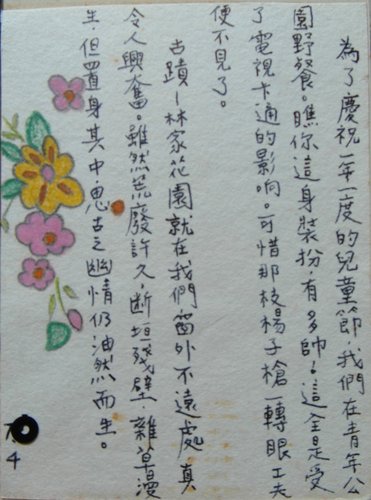 為了慶祝一年一度的兒童節，我們在青年公
園野餐。瞧你這身裝扮，有多帥！這全是受
了電視卡通的影响。可惜那枝楊子槍一轉眼工夫
便不見了。
古蹟—林家花園就在我們窗外不遠處，真
令人興奮。雖然荒廢許久，断垣殘壁，雜草漫
生，但置身其中，思古之幽情仍油然而生。
4